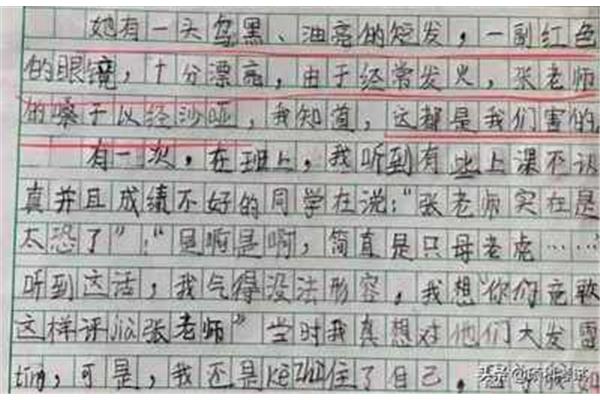 她有一头乌黑、油亮的短发，一副红色
的眼镜，十分漂亮，由于经常发火，张老师
的嗓子以经沙哑，我知道，这都是我们害的
有一次，在班上，我听到有些上课不认
真并且成绩不好的同学在说："张老师实在是
太恐了"："是啊是啊，简直是只母老虎……
听到这话，我气得没法形容，我想"你们竟敢
这样评jià张老师"当时我真想对他们大发雷
tíng，可是，我还是kèzhì住了自己，
头条